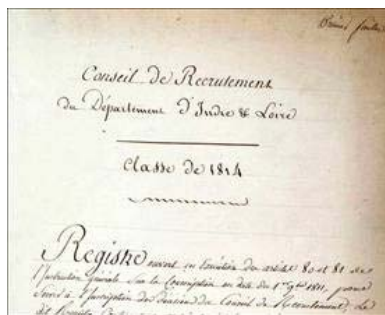 Conseil de Recrutement
du Département d'Indre & Loire
Classe de 1814
Registre ouvert en Exécution des articles 80 et 81 de
l'Instruction générale sur la Conscription en date du 1er 9bre 1811, pour
Servir à l'Inscription des Décisions du Conseil de Recrutement, Le
dit Registre